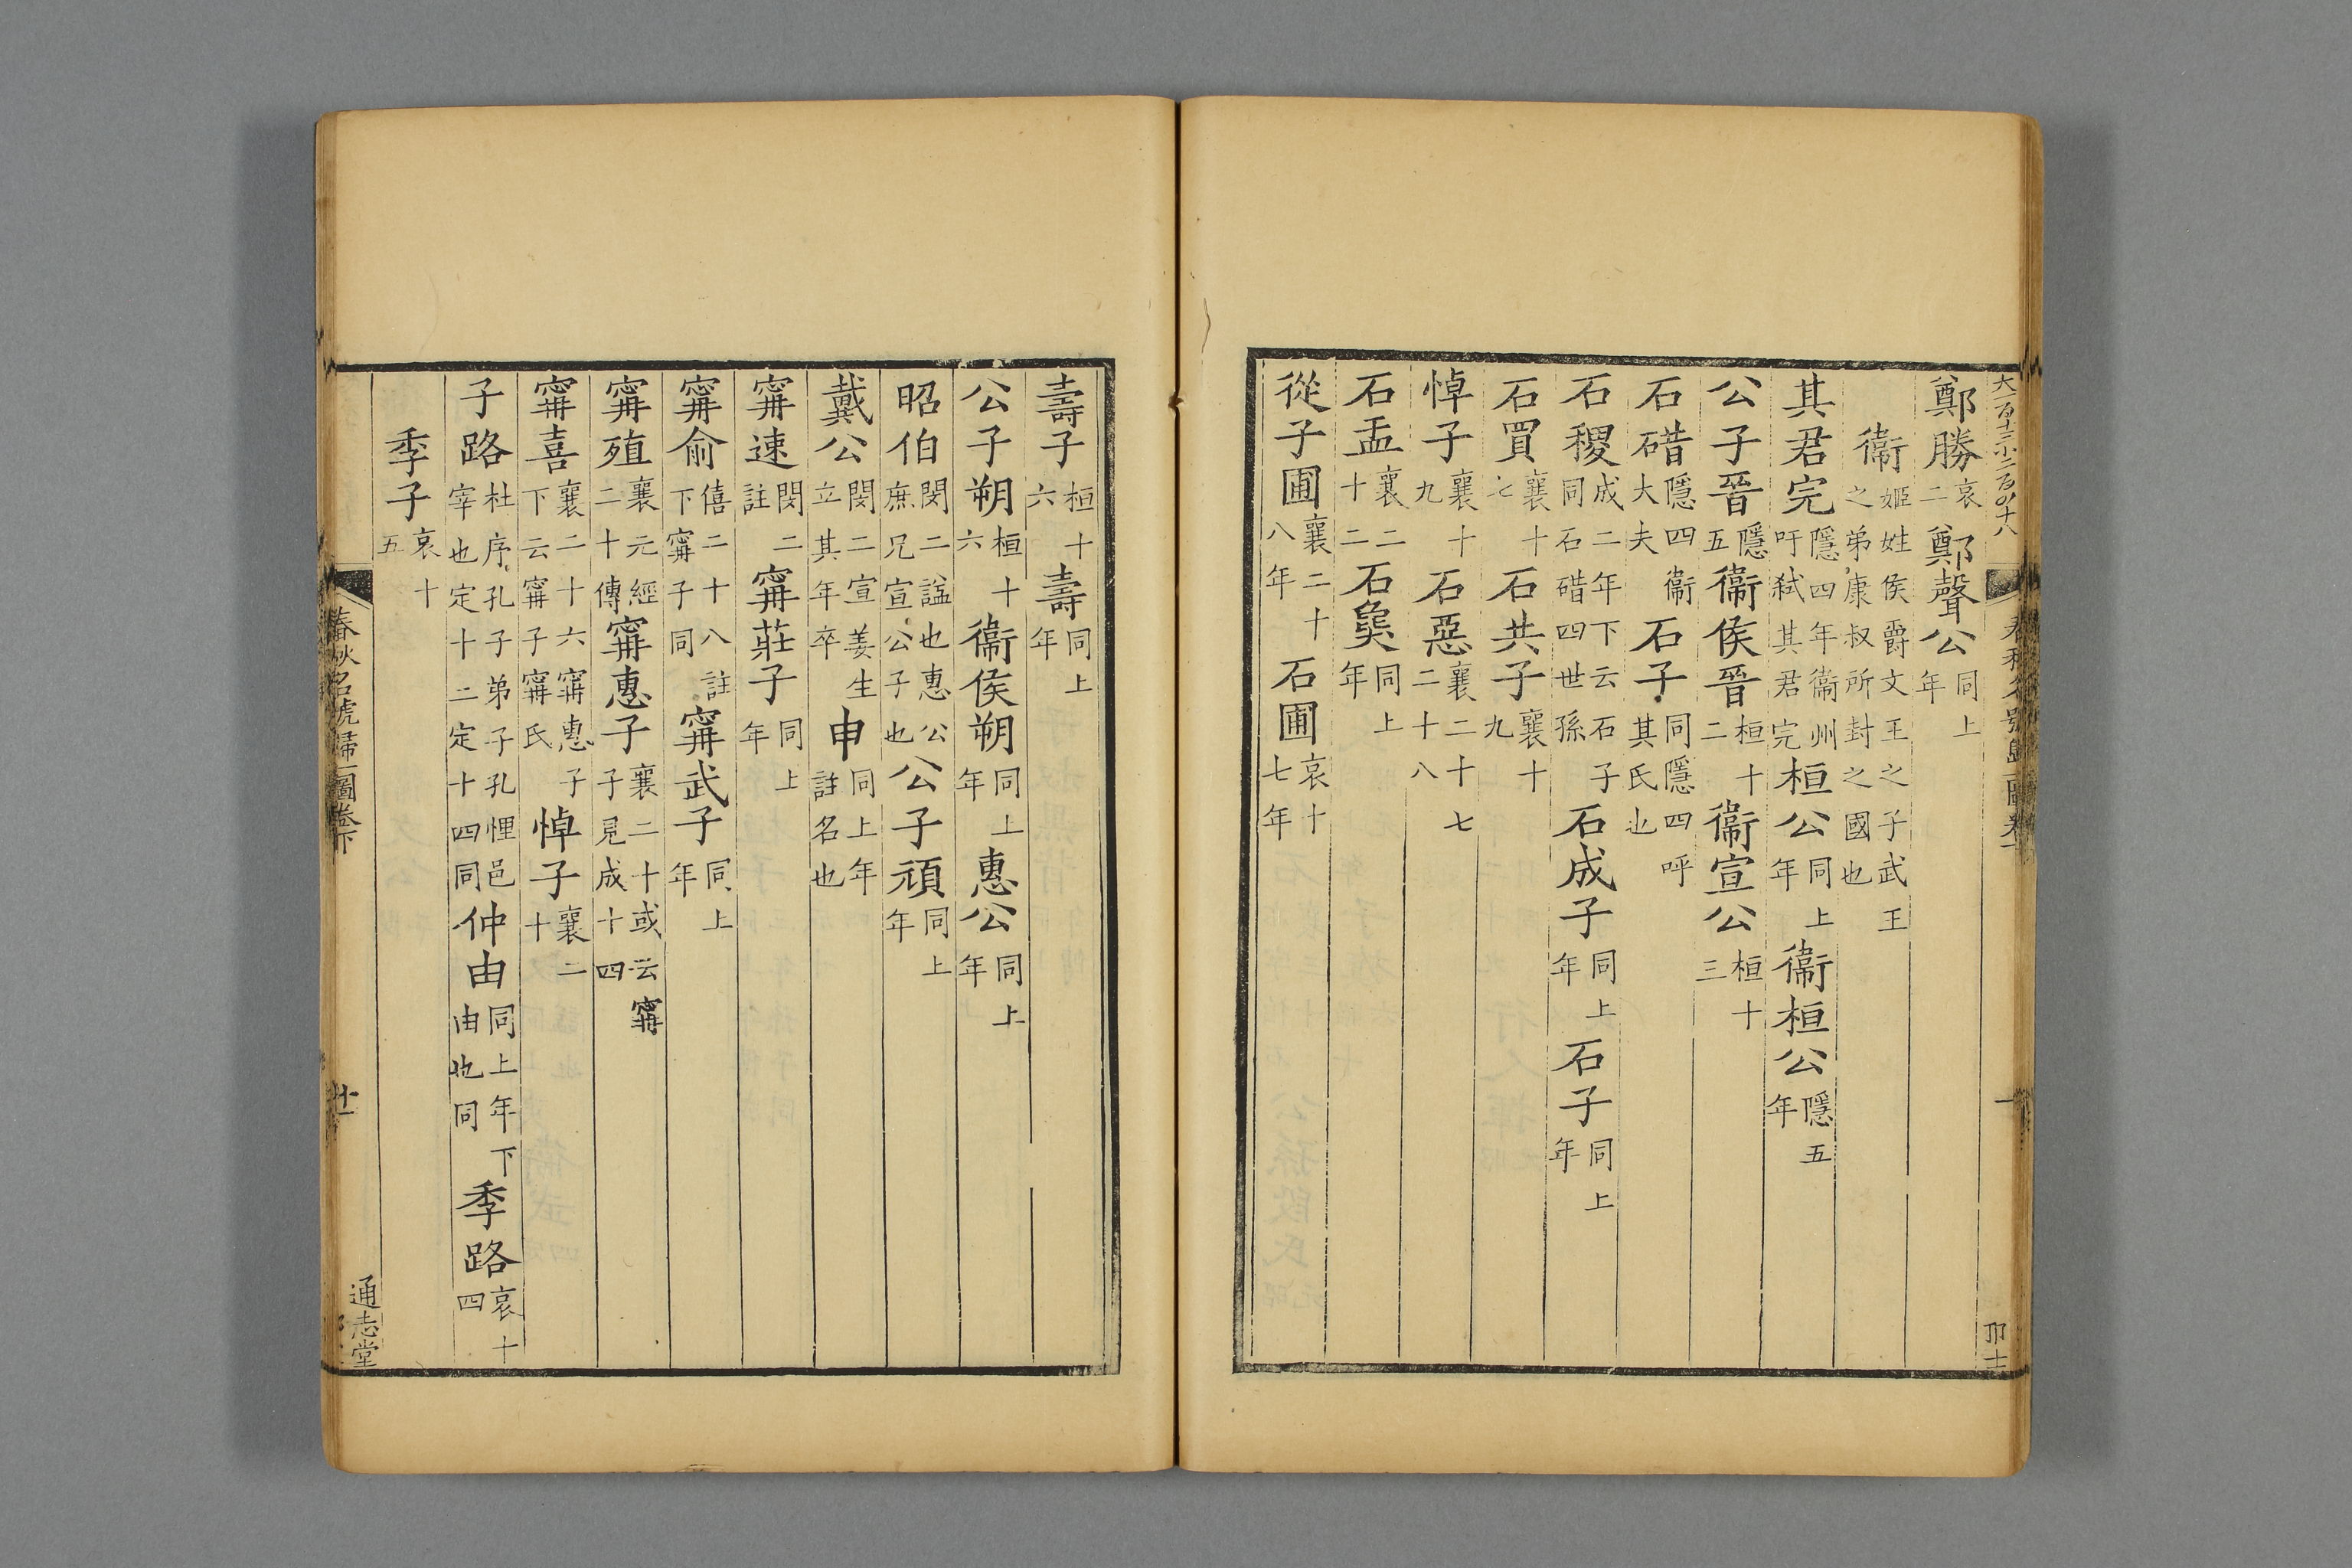 大一百十三小二百四十八
鄭勝哀二鄭聲公同上年
衞姬姓侯爵文王之子武王之弟康叔所封之國也
其君完隱四年衞州吁弑其君完桓公同上年衞桓公隱五年
公子晉隱五衞侯晉桓十二衞宣公桓十三
石碏隱四衞大夫石子同隱四呼其氏也
石稷成二年下云石子同石碏四世孫石成子同上年石子同上年
石買襄十七石共子襄十九
悼子襄十九石惡襄二十七二十八
石盂襄二十二石㚟同上年
從子圃襄二十八年石圃哀十七年
壽子桓十六壽同上年
公子朔桓十六衞侯朔同上年惠公同上年
昭伯閔二諡也惠公庶兄宣公子也公子頑同上年
戴公閔二宣姜生立其年卒申同上年註名也
甯速閔二註甯莊子同上年
甯俞僖二十八註下甯子同甯武子同上年
甯殖襄元經二十傳甯惠子襄二十或云甯子見成十四
甯喜襄二十六甯惠子下云甯子甯氏悼子襄二十
子路杜序孔子弟子孔悝邑宰也定十二定十四同仲由同上年下由也同季路哀十四
季子哀十五
春秋名號歸一圖卷下
廿一
通志堂